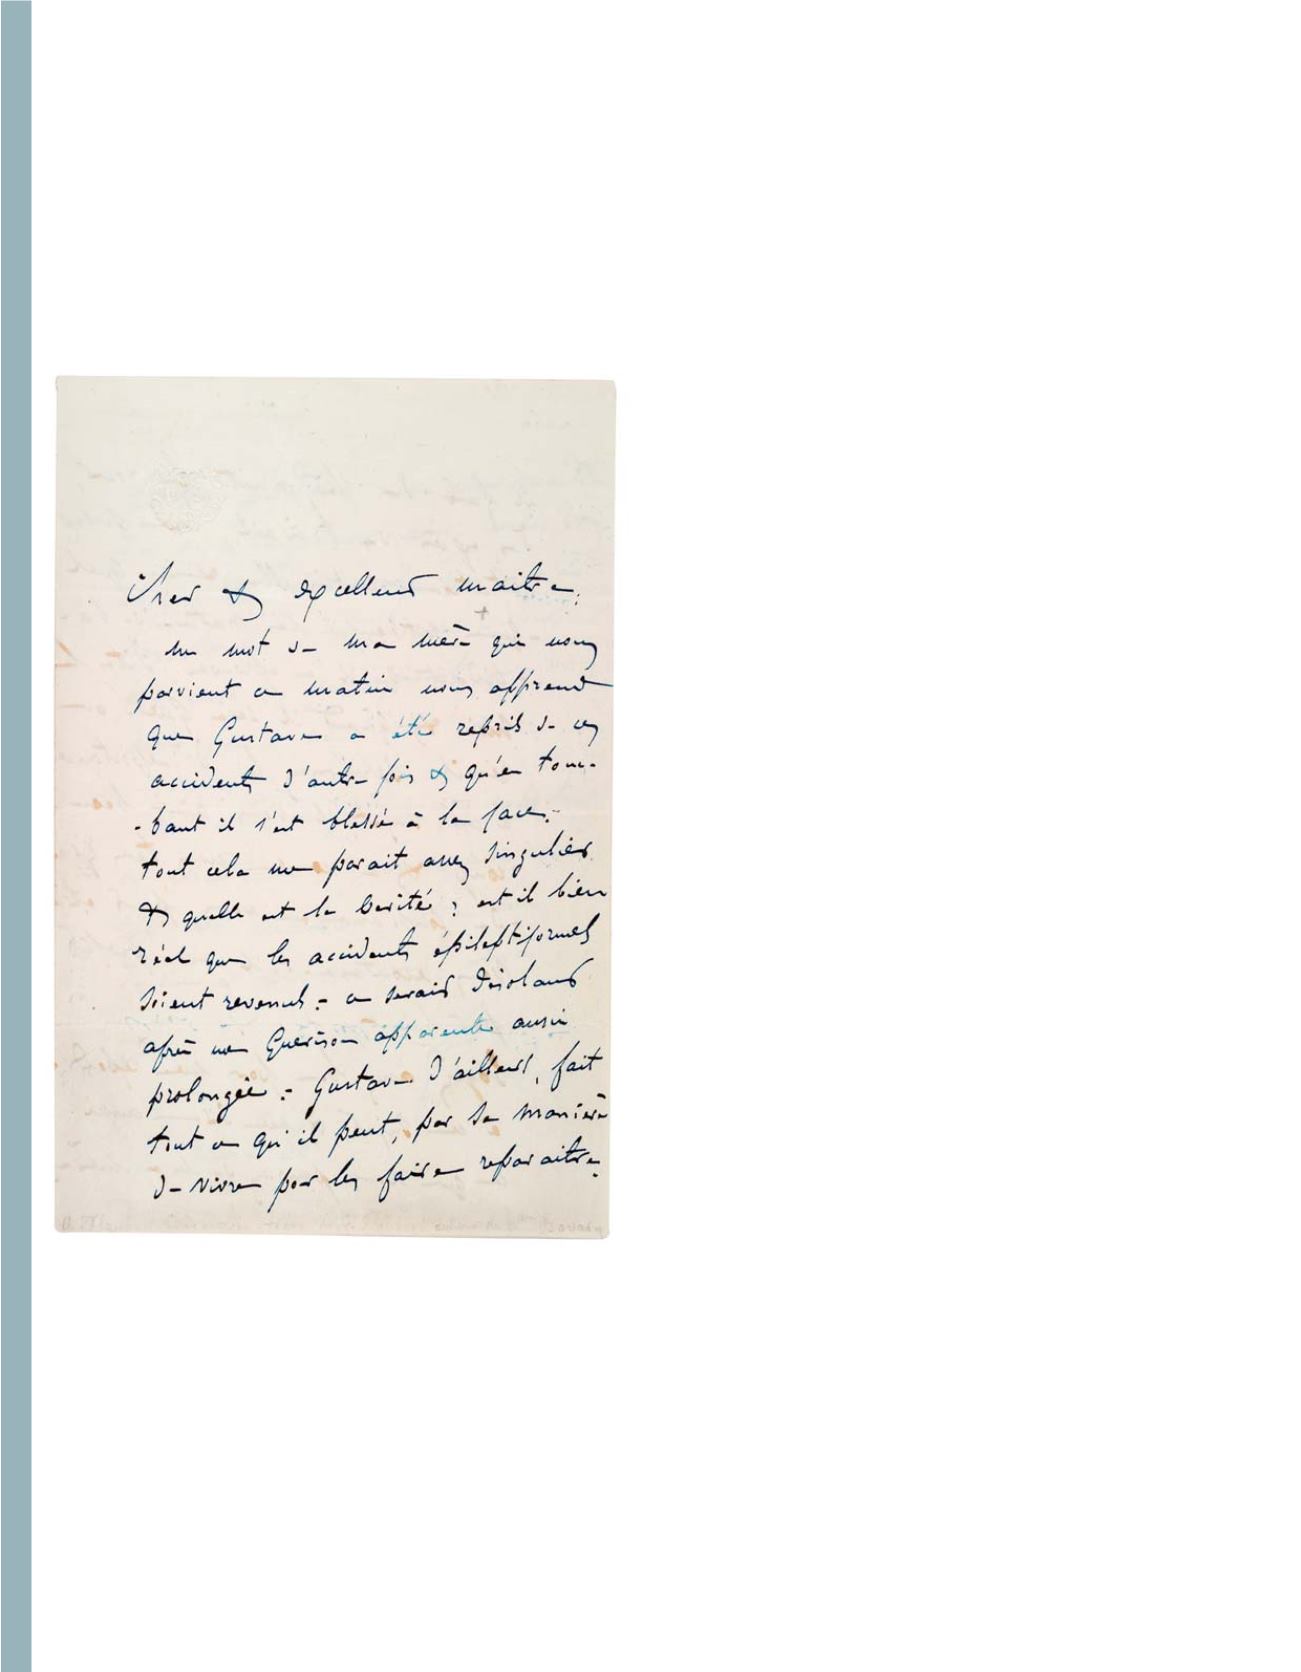 Cher & excellent maitre,
un mot de ma mère qui nous
parvient ce matin nous apprend
que Gustave a été repris de ces
accidents d'autre fois & qu'en tom-
-bant il s'est blessé à la face.
tout cela me parait assez singulier
& quelle est la verité ; est il bien
réel que les accidents épileptiformes
soient revenus - ce serait désolant
après une Guérison apparente aussi
prolongée - Gustave d'ailleurs, fait
tout ce qu'il peut, par sa manière
de vivre pour les faire reparaitre.